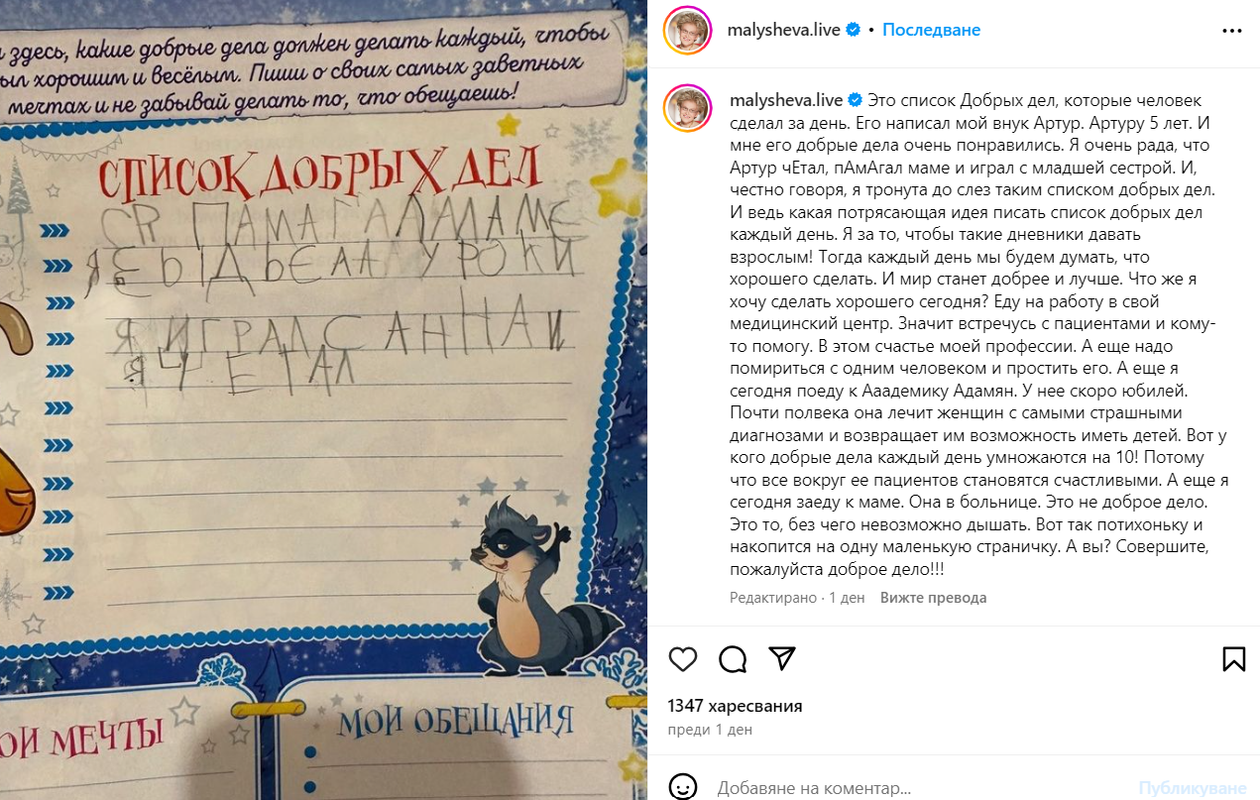 здесь, какие добрые дела должен делать каждый, чтобы
был хорошим и весёлым. Пиши о своих самых заветных
мечтах и не забывай делать то, что обещаешь!
СПИСОК ДОБРЫХ ДЕЛ
ПАМАГАЛ МАМЕ
Я УРОКИ
Я ИГРАЛ С АННАЙ
Я Ч ЕТАЛ
ОИ МЕЧТЫ
МОИ ОБЕЩАНИЯ
malysheva.live • Последване
malysheva.live Это список Добрых дел, которые человек
сделал за день. Его написал мой внук Артур. Артуру 5 лет. И
мне его добрые дела очень понравились. Я очень рада, что
Артур чЕтал, пАмАгал маме и играл с младшей сестрой. И,
честно говоря, я тронута до слез таким списком добрых дел.
И ведь какая потрясающая идея писать список добрых дел
каждый день. Я за то, чтобы такие дневники давать
взрослым! Тогда каждый день мы будем думать, что
хорошего сделать. И мир станет добрее и лучше. Что же я
хочу сделать хорошего сегодня? Еду на работу в свой
медицинский центр. Значит встречусь с пациентами и кому-
то помогу. В этом счастье моей профессии. А еще надо
помириться с одним человеком и простить его. А еще я
сегодня поеду к Ааадемику Адамян. У нее скоро юбилей.
Почти полвека она лечит женщин с самыми страшными
диагнозами и возвращает им возможность иметь детей. Вот у
кого добрые дела каждый день умножаются на 10! Потому
что все вокруг ее пациентов становятся счастливыми. А еще я
сегодня заеду к маме. Она в больнице. Это не доброе дело.
Это то, без чего невозможно дышать. Вот так потихоньку и
накопится на одну маленькую страничку. А вы? Совершите,
пожалуйста доброе дело!!!
Редактирано · 1 ден Вижте превода
1347 харесвания
преди 1 ден
Добавяне на коментар... Публикуване